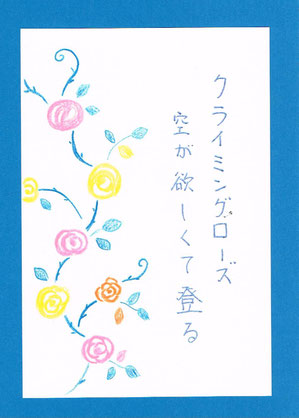 クライミングローズ
空が欲しくて登る